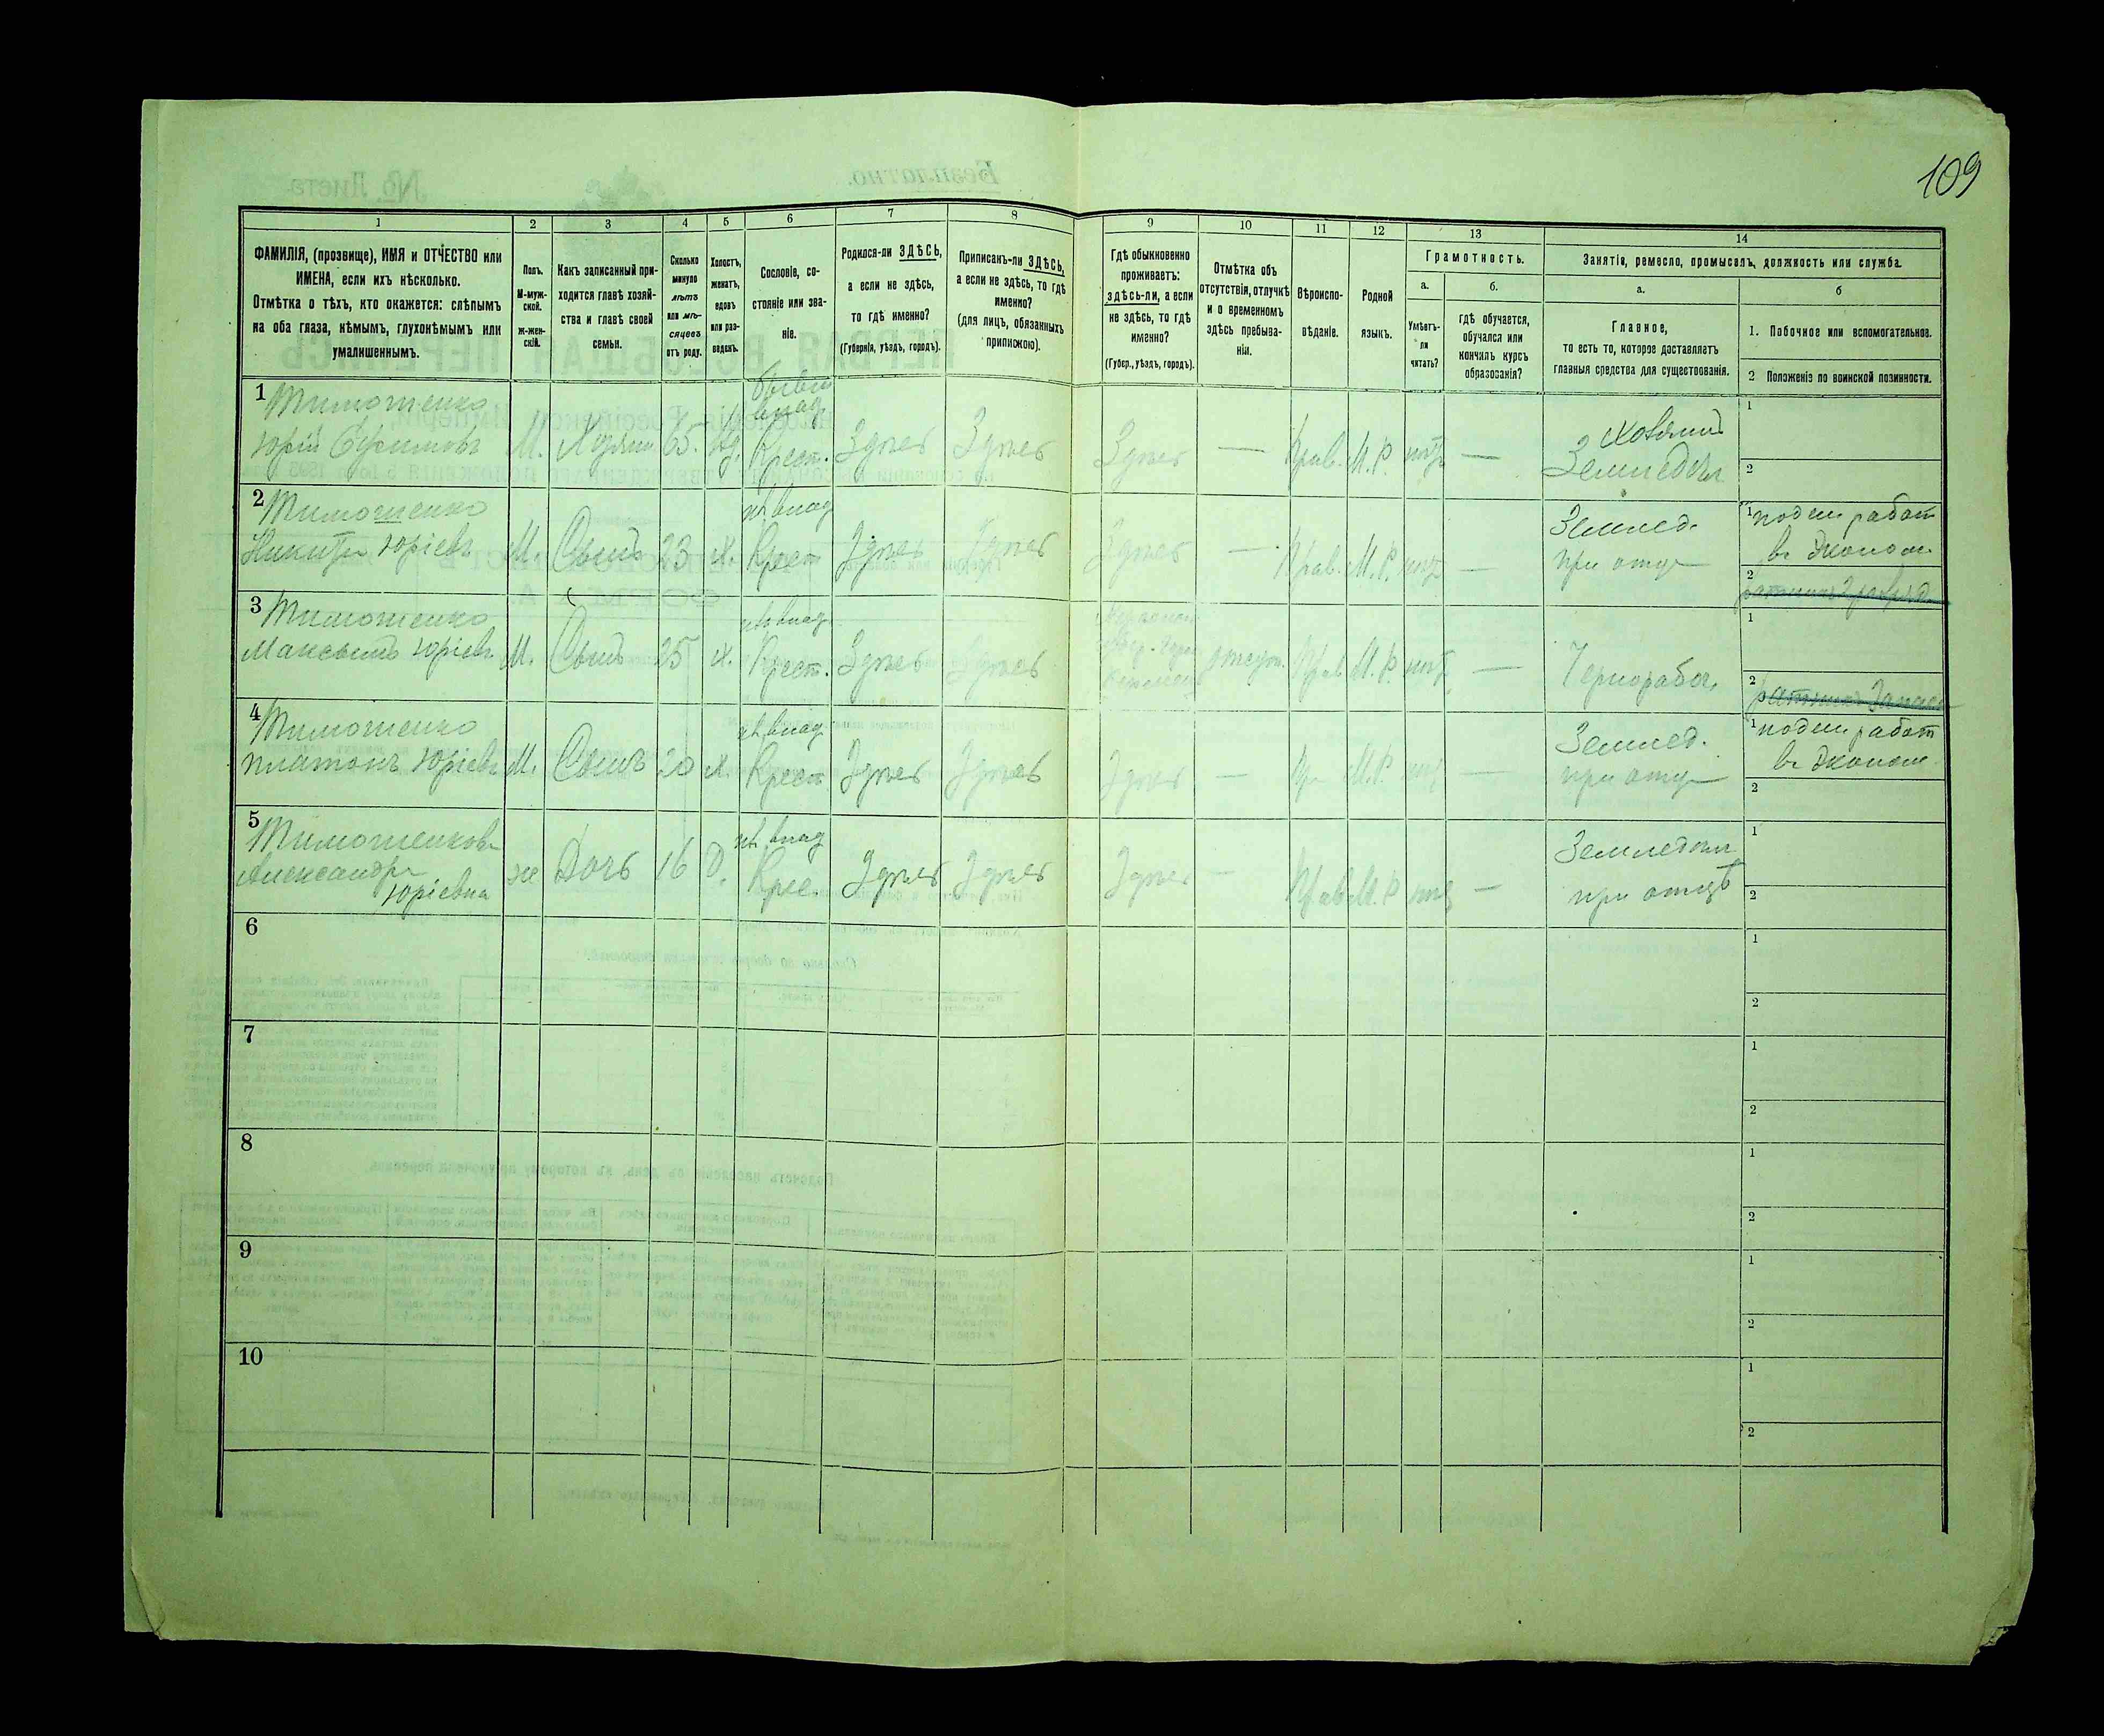 109
1
2
3
4
5
6
7
8
9
10
11
12
13
14
ФАМИЛІЯ, (прозвище), ИМЯ и ОТЧЕСТВО или
ИМЕНА, если ихъ нѣсколько.
Отмѣтка о тѣхъ, кто окажется: слѣпымъ
на оба глаза, нѣмымъ, глухонѣмымъ или
умалишеннымъ.
Полъ.
М-муж-
ской.
ж-жен-
скій.
Какъ записанный при-
ходится главѣ хозяй-
ства и главѣ своей
семьи.
Сколько
минуло
лѣтъ
или мѣ-
сяцевъ
отъ роду.
Холостъ,
женатъ,
вдовъ
или раз-
веденъ.
Сословіе, со-
стояніе или зва-
ніе.
Родился-ли ЗДѢСЬ,
а если не здѣсь,
то гдѣ именно?
(Губернія, уѣздъ, городъ).
Приписанъ-ли ЗДѢСЬ,
а если не здѣсь, то гдѣ
именно?
(для лицъ, обязанныхъ
припиской).
Гдѣ обыкновенно
проживаетъ:
здѣсь-ли, а если
не здѣсь, то гдѣ
именно?
(Губер., уѣздъ, городъ).
Отмѣтка объ
отсутствіи, отлучкѣ
и о временномъ
здѣсь пребыва-
ніи.
Вѣроиспо-
вѣданіе.
Родной
языкъ.
Грамотность.
а.
Умѣетъ-
ли
читать?
б.
гдѣ обучается,
обучался или
кончилъ курсъ
образованія?
Занятіе, ремесло, промыселъ, должность или служба.
а.
Главное,
то есть то, которое доставляетъ
главныя средства для существованія.
б
1. Побочное или вспомогательное.
2 Положеніе по воинской повинности.
1 Тимошенко
Юрій Ефимовъ М. Хозяин 65. вд. Крест. Здѣсь Здѣсь Здѣсь — Прав. М.Р. нѣтъ — Хозяинъ
Земледѣл
1
2
2 Тимошенко
Никита Юріевъ М. Сынъ 23 х. Крест Здѣсь Здѣсь Здѣсь — Прав. М.Р. нѣтъ — Землед.
при отцѣ
1 поден работ
въ Эконом.
2
3 Тимошенко
Максимъ Юріевъ М. Сынъ 25 х. Крест. Здѣсь Здѣсь Прав М.Р. нѣтъ — Чернорабоч.
1
2 ратникъ Запаса
4 Тимошенко
Платонъ Юріевъ М. Сынъ 20 х. Крест Здѣсь Здѣсь Здѣсь — Пр М.Р. нѣтъ — Землед.
при отцѣ
1 поден работ
въ Эконом
2
5 Тимошенкова
Александра
Юріевна ж Дочь 16 д. Крес. Здѣсь Здѣсь Здѣсь — Прав М.Р нѣтъ — Земледѣл
при отцѣ
1
2
6
1
2
7
1
2
8
1
2
9
1
2
10
1
2